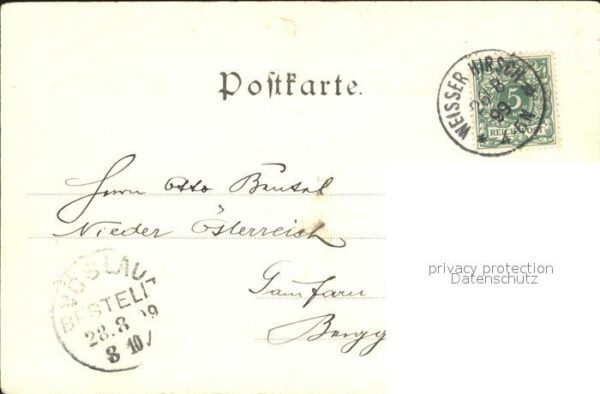 Postkarte.
WEISSER HIRSCH
26.8
99
5
REICHSPOST
Herrn Otto Beutel
Nieder Österreich
privacy protection
Datenschutz
VÖSLAU
BESTELLT
28.8 99
8 10 V
Gainfarn
Bergg